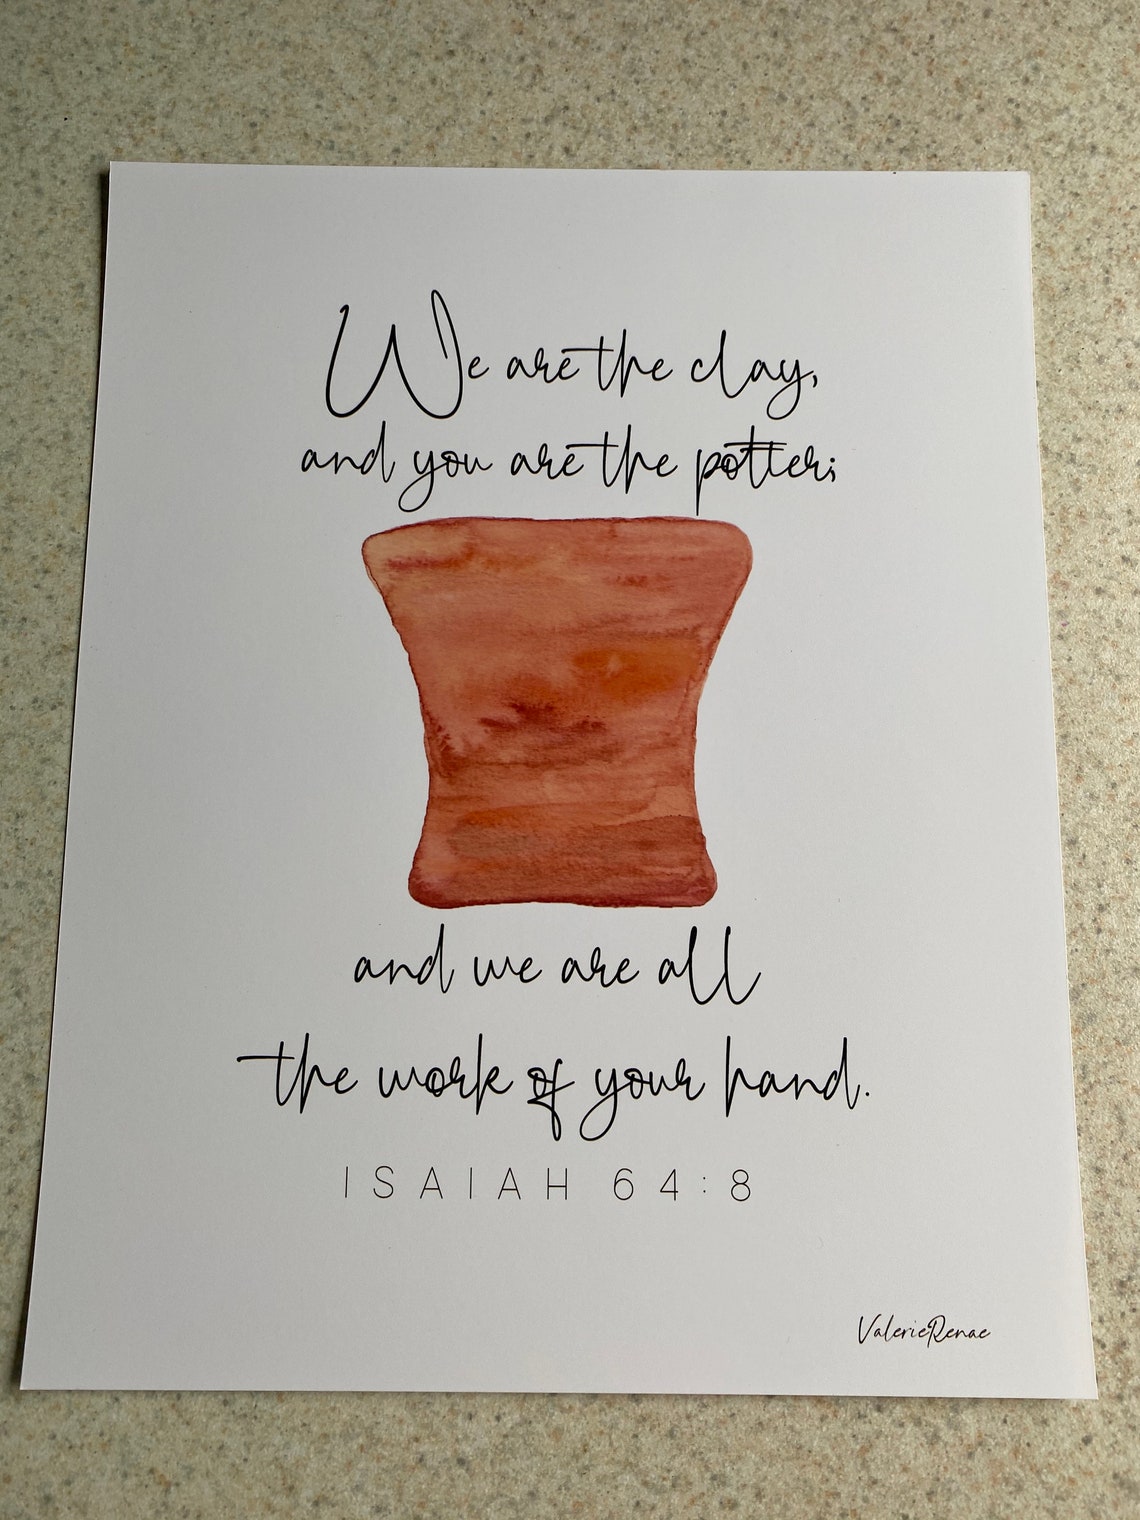 We are the clay,
and you are the potter;
and we are all
the work of your hand.
ISAIAH 64:8
ValerieRenae